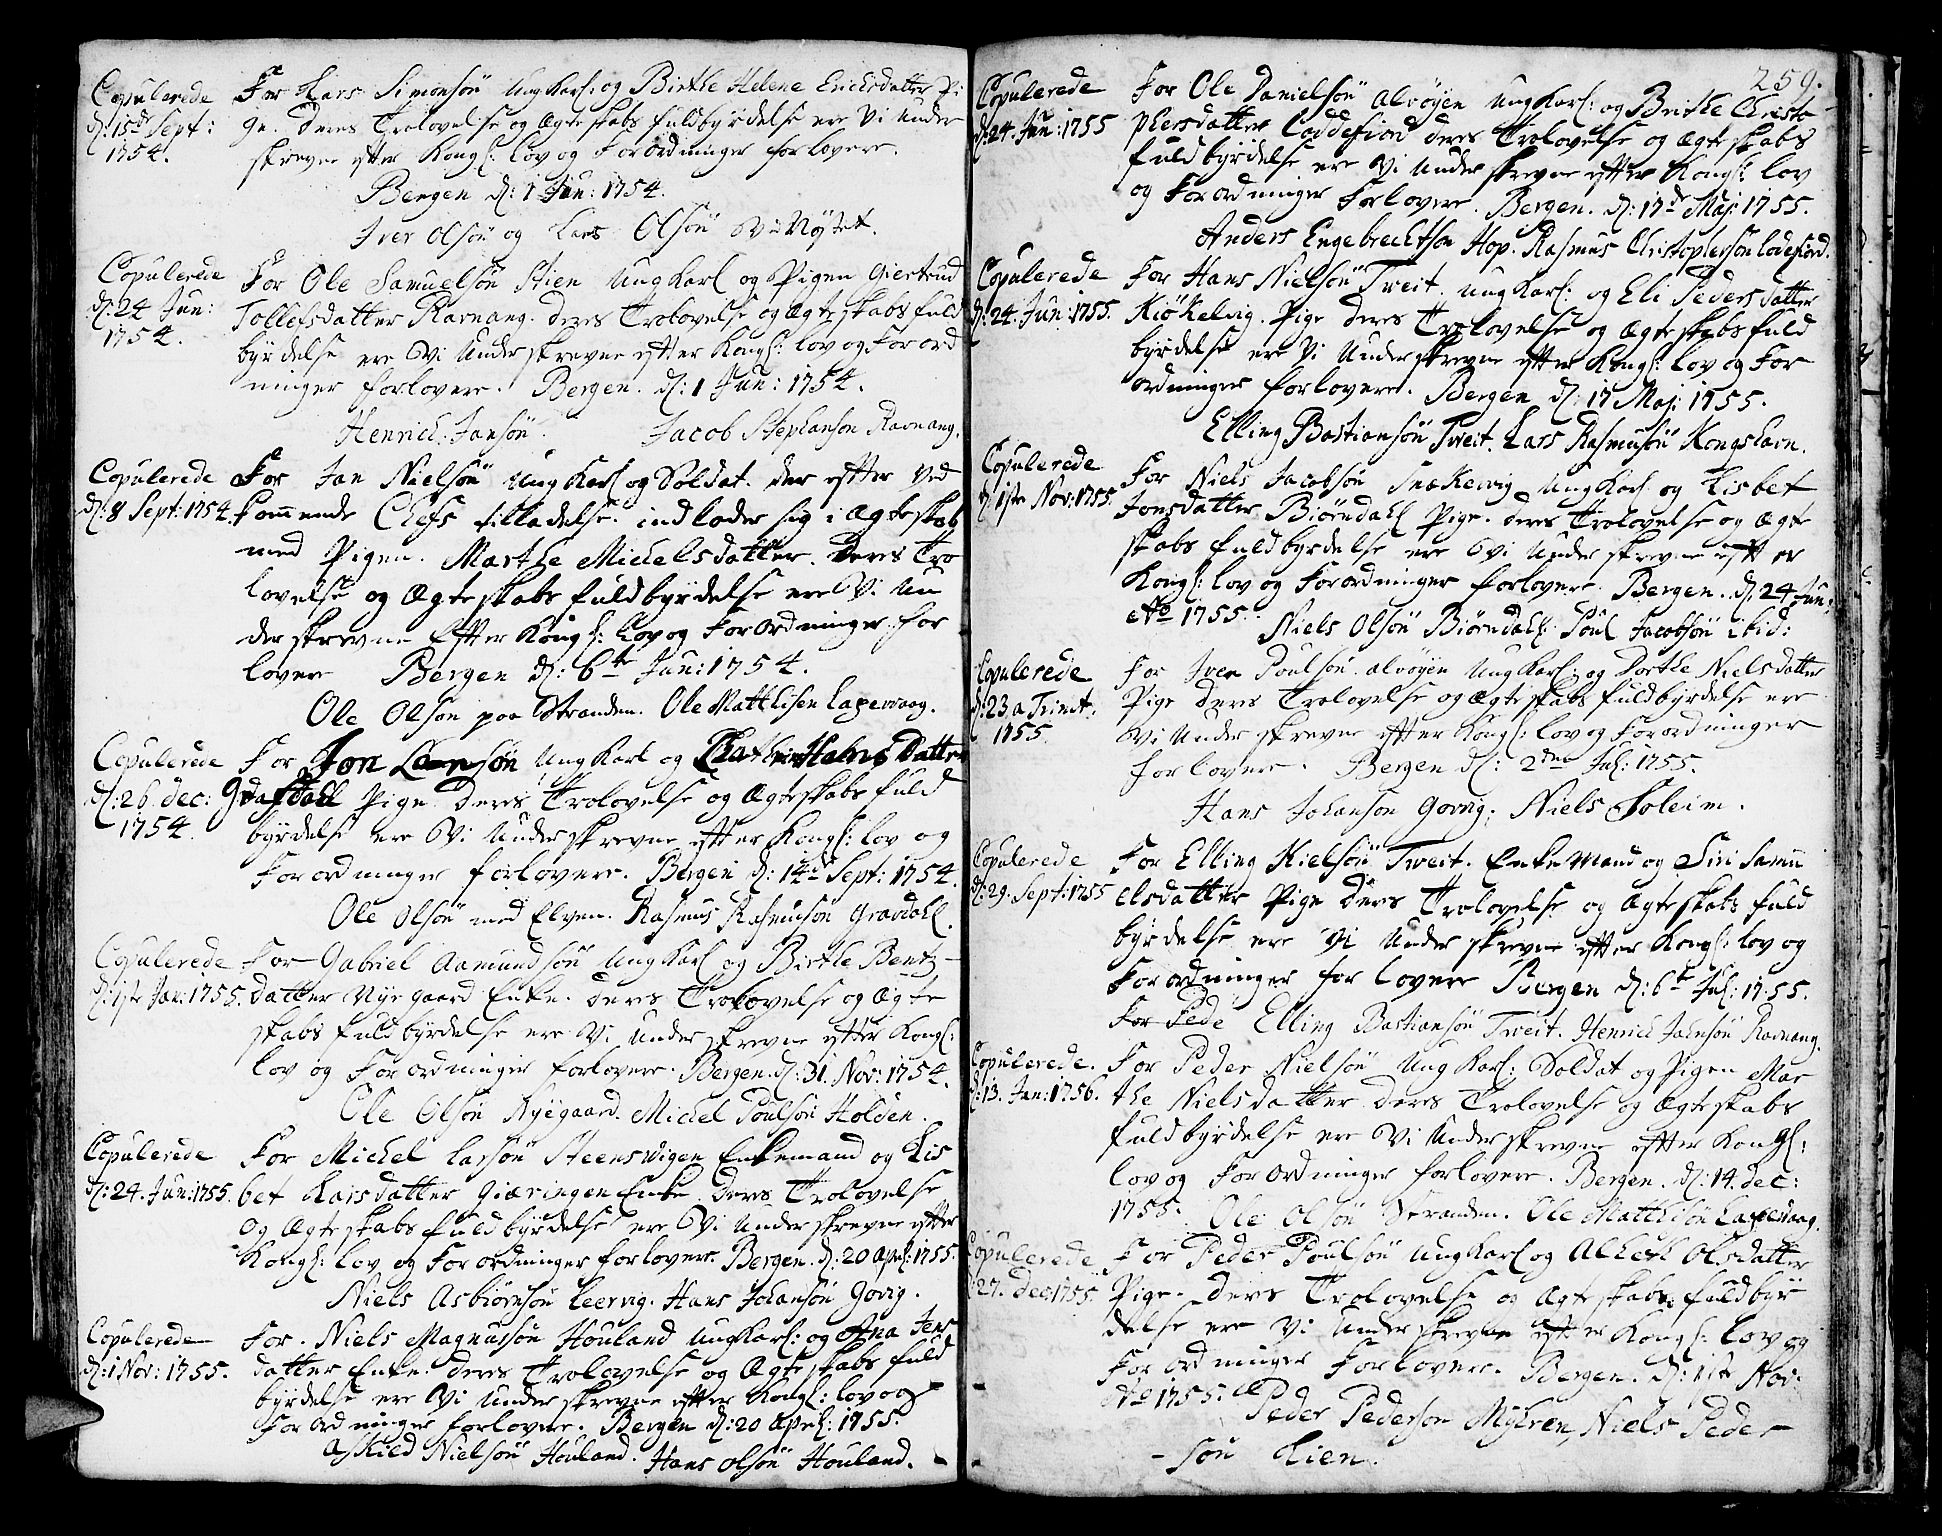 Copulerede
d: 15de Sept:
1754.
For Lars Simonsön Ung Karl: og Birthe Helene Erichsdatter Pi
ge. deres Trolovelse og Ægteskabs fuldbyrdelse ere Vi Under
skrevne efter Kongl: lov og Forordninger forlovere.
Bergen d: 1 Jun: 1754.
Iver Olsön og Lars Olsön
Copulerede
d: 24 Jun:
1754.
For Ole Samuelsön Stien Ung Karl og Pigen Giertrud
Tollefsdatter Ravnang. deres Trolovelse og Ægteskabs fuld
byrdelse ere Vi Underskrevne efter Kongl: lov og Forord
ninger forlovere. Bergen. d: 1 Jun: 1754.
Henrich Jansön. Jacob Stephanson Ravnang.
Copulerede
d: 8 Sept: 1754.
For Jan Nielsön Ung Karl og Soldat. der efter Ved
kommende Chefs tilladelse indlader sig i Ægteskab
med Pigen. Marthe Michelsdatter. Deres Tro
lovelse og Ægteskabs fuldbyrdelse ere Vi Un
derskrevne Efter Kongl: Lov og Forordninger for
lovere Bergen d: 6te Jun: 1754.
Ole Olson paa Stranden. Ole Matthisen Laxevaag.
Copulerede
d: 26 dec:
1754.
For Jon Larsön Ung Karl og Hans Datter
Gravdahl Pige Deres Trolovelse og Ægteskabs fuld
byrdelse ere Vi Underskrevne efter Kongl: lov og
Forordninger forlovere. Bergen d: 14de Sept: 1754.
Ole Olsön med Elven. Rasmus Rasmusön Gravdahl.
Copulerede
d: 1ste Jan: 1755.
For Gabriel Aamundsön Ung Karl og Birthe Bentz-
datter Nyegaard Enke. deres Trolovelse og Ægte
skabs fuldbyrdelse ere Vi Underskrevne efter Kongl:
lov og Forordninger forlovere. Bergen. d: 31. Nov: 1754.
Ole Olsön Nyegaard. Michel Poulsön Holden.
Copulerede
d: 24. Jun: 1755.
For Michel Larsön Steensvigen Enkemand og Lis
bet Larsdatter Giæringen Enke. Deres Trolovelse
og Ægteskabs fuldbyrdelse ere Vi Underskrevne efter
Kongl: lov og Forordninger forlovere. Bergen. d: 20 April: 1755.
Niels Asbiörnsön Leervig. Hans Johansön Govig.
Copulerede
d: 1 Nov: 1755.
For. Niels Magnusön Houland Ung Karl: og Ana Jens
datter Enke. deres Trolovelse og Ægteskabs fuld
byrdelse ere Vi Underskrevne efter Kongl: lov og
Forordninger forlovere. Bergen d: 20 April: 1755.
Askild Nielsön Houland. Hans Olsön Houland.
259.
Copulerede
d: 24. Jun: 1755
For Ole Danielsön Alvöyen Ung Karl: og Brithe Christo-
phersdatter Loddefiord deres Trolovelse og Ægteskabs
fuldbyrdelse ere Vi Underskrevne efter Kongl: lov
og Forordninger Forlovere. Bergen. d: 17de Maj: 1755.
Anders Engebrechtson Hop. Rasmus Christophersön Lodefiord.
Copulerede
d: 24. Jun: 1755.
For Hans Nielsön Tweit. Ung Karl: og Eli Pedersdatter
Kiökelvig. Pige deres Trolovelse og Ægteskabs fuld
byrdelse ere Vi Underskrevne efter Kongl: lov og For
ordninger forlovere. Bergen d: 17 Maj: 1755.
Elling Bastiansön Tweit. Lars Rasmusön Kongshavn.
Copulerede
d: 1ste Nov: 1755.
For Niels Jacobsön Snekevig Ung Karl og Lisbet
Jonsdatter Biörndahl Pige. deres Trolovelse og Ægte
skabs fuldbyrdelse ere Vi Underskrevne efter
Kongl: lov og Forordninger forlovere. Bergen. d: 24 Jun:
Ao 1755. Niels Olsön Biörndahl. Poul Jacobsön ibid:
Copulerede
d: 23 a Trinit.
1755.
For Iver Poulsön. Alvöyen Ung Karl: og Dorthe Nielsdatter
Pige deres Trolovelse og Ægteskabs fuldbyrdelse ere
Vi Underskrevne efter Kongl: lov og Forordninger
forlovere. Bergen d: 2den Jul: 1755.
Hans Johansön Govig; Niels Soleim.
Copulerede
d: 29. Sept: 1755
For Elling Nielsön Tweit. Enke Mand og Siri Samu
elsdatter Pige Deres Trolovelse og Ægteskabs fuld
byrdelse ere Vi Underskrevne efter Kongl: lov og
Forordninger forlovere Bergen d: 6te Jul: 1755.
For Pede Elling Bastiansön Tweit. Henrich Jahnsön Ravnang.
Copulerede.
d: 13. Jan: 1756.
For Peder Nielsön Ung Karl: Soldat og Pigen Mar
the Nielsdatter deres Trolovelse og Ægteskabs
fuldbyrdelse ere Vi Underskrevne efter Kongl:
lov og Forordninger forlovere. Bergen. d: 14. dec:
1755. Ole Olsön Stranden. Ole Matthisön Laxevaag.
Copulerede
27. Dec: 1755.
For Peder Poulsön Ung Karl og Alheit Olsdatter
Pige. Deres Trolovelse og Ægteskabs fuldbyr
delse ere Vi Underskrevne efter Kongl: lov og
Forordninger Forlovere. Bergen. d: 1ste Nov:
Ao 1755. Peder Pederson Myhren, Niels Peder
-sön Lien.